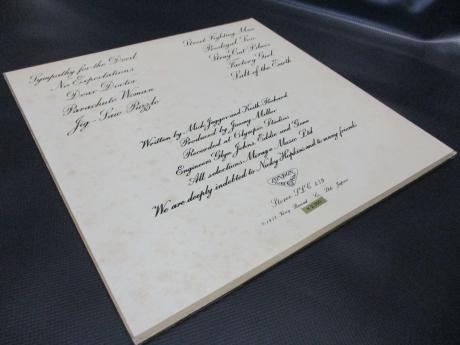 Sympathy for the Devil
No Expectations
Dear Doctor
Parachute Woman
Jig-Saw Puzzle
Street Fighting Man
Prodigal Son
Stray Cat Blues
Factory Girl
Salt of the Earth
Written by Mick Jagger and Keith Richard
Produced by Jimmy Miller
Recorded at Olympic Studios
Engineers Glyn Johns, Eddie and Gene
All selections Mirage Music Ltd
We are deeply indebted to Nicky Hopkins and to many friends
LONDON
King Record Co. Ltd. Japan